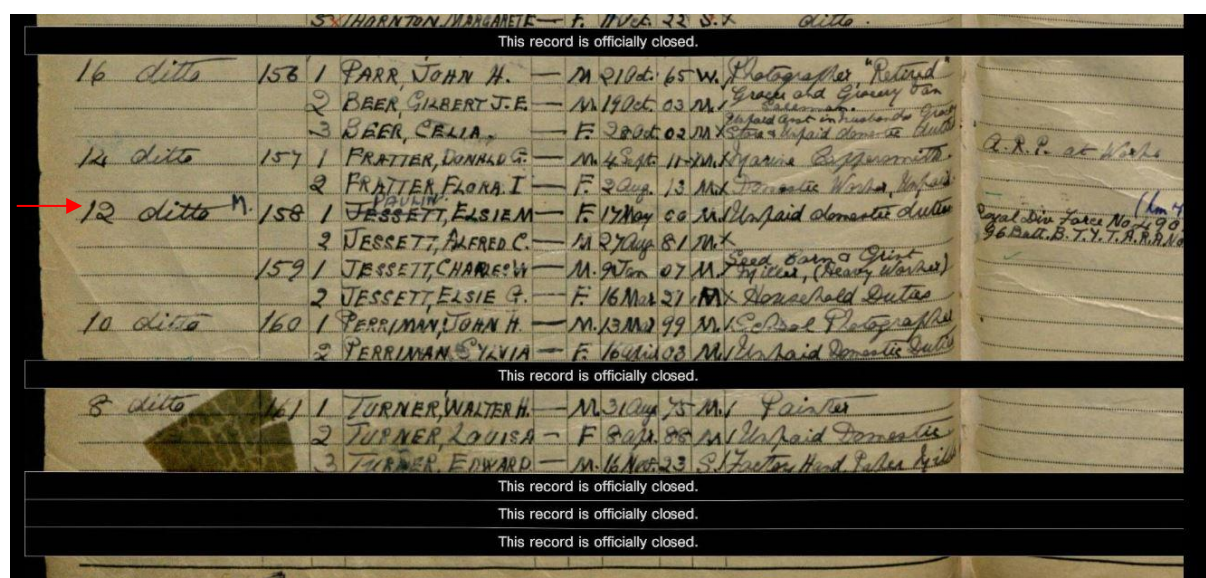 5 THORNTON, MARGARETE — F. 11 Oct. 22 S. X ditto.
This record is officially closed.
16 ditto 156 1 PARR, JOHN H. — M 21 Oct. 65 W. / Photographer, "Retired"
2 BEER, GILBERT J. E. — M. 19 Oct. 03 M. / Grocer and Grocery Van Salesman.
3 BEER, CELIA. — F. 28 Oct 02 M X Unpaid asst in husbands Grocery Store & Unpaid domestic duties
14 ditto 157 1 PRATTER, DONALD G. — M. 4 Sept. 11 M. X Marine Coppersmith. A.R.P. at Works
2 PRATTER, FLORA. I — F. 2 Aug. 13 M. X Domestic Worker, Unpaid.
PAULIN
12 ditto M. 158 1 JESSETT, ELSIE M — F. 17 May 00 M. / Unpaid domestic duties
2 JESSETT, ALFRED C. — M 27 Aug 81 M. X Royal Div. Force No. 490
96 Batt. B.T.Y.T.A.R.A No
159 1 JESSETT, CHARLES W — M. 9 Jan 07 M. X Seed Barn & Grist Miller, (Heavy Worker)
2 JESSETT, ELSIE G. — F. 16 Mar 21 M X Household Duties
10 ditto 160 1 PERRIMAN, JOHN H. — M. 13 Mar 99 M. / School Photographer
2 PERRIMAN, SYLVIA — F. 16 April 03 M / Unpaid Domestic Duties
This record is officially closed.
8 ditto 161 1 TURNER, WALTER H. — M. 31 Aug 75 M. / Painter
2 TURNER, LOUISA — F 8 Apr. 88 M / Unpaid Domestic
3 TURNER, EDWARD — M. 16 Nov. 23 S. / Factory Hand, Paper Mill
This record is officially closed.
This record is officially closed.
This record is officially closed.